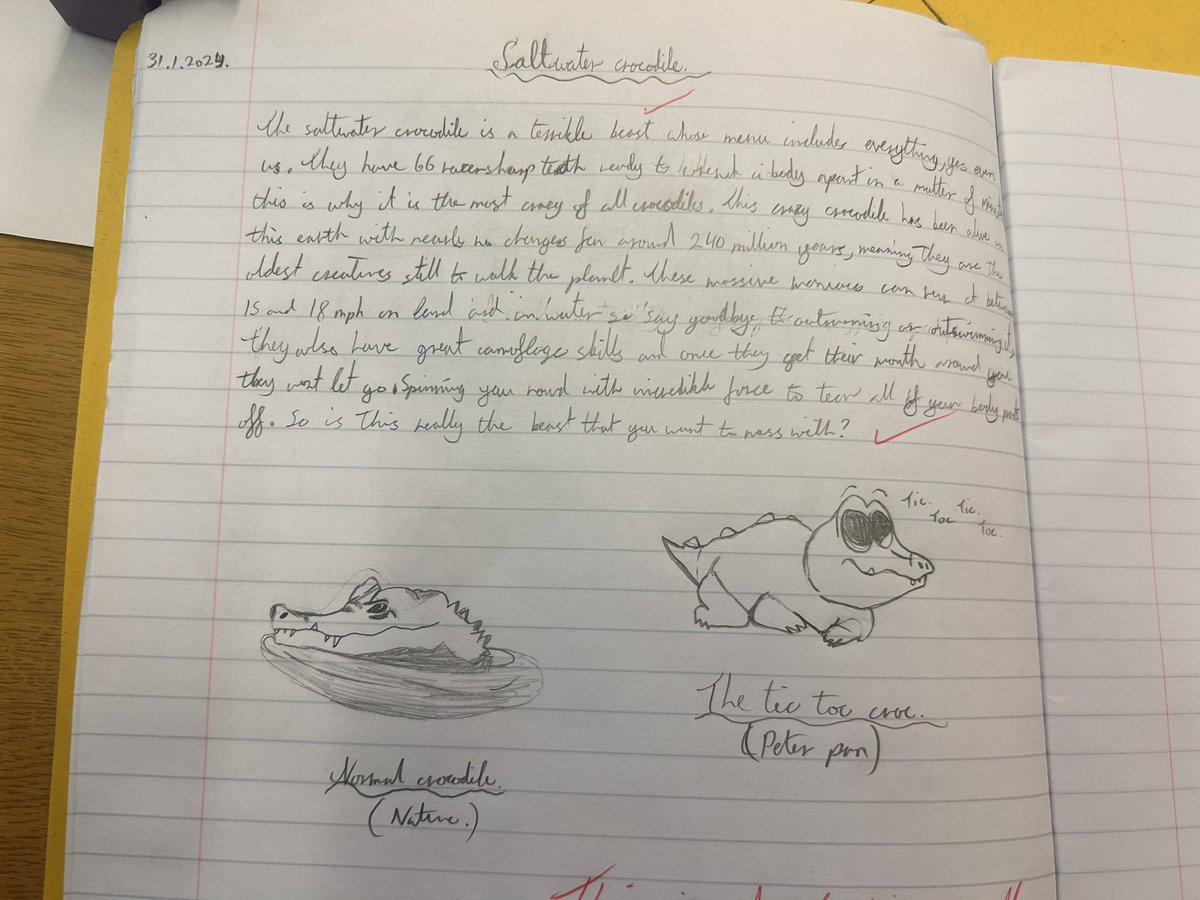 31.1.2024.
Saltwater crocodile.
The saltwater crocodile is a terrible beast whose menu includes everything, yes even
us. They have 66 racersharp teeth ready to a body apart in a matter of
this is why it is the most crazy of all crocodiles. This crazy crocodile has been alive on
this earth with nearly no changes for around 240 million years, meaning they are the
oldest creatures still to walk the planet. These massive maniacs can run at between
15 and 18 mph on land and in water so say goodbye outrunning or outswimming it,
they also have great camoflage skills and once they get their mouth around you
they wont let go. Spinning you round with incredible force to tear all of your body parts
off. So is this really the beast that you want to mess with?
Tic. Toc Tic. Toc.
The tic toc croc.
(Peter pan)
Normal crocodile.
(Nature.)